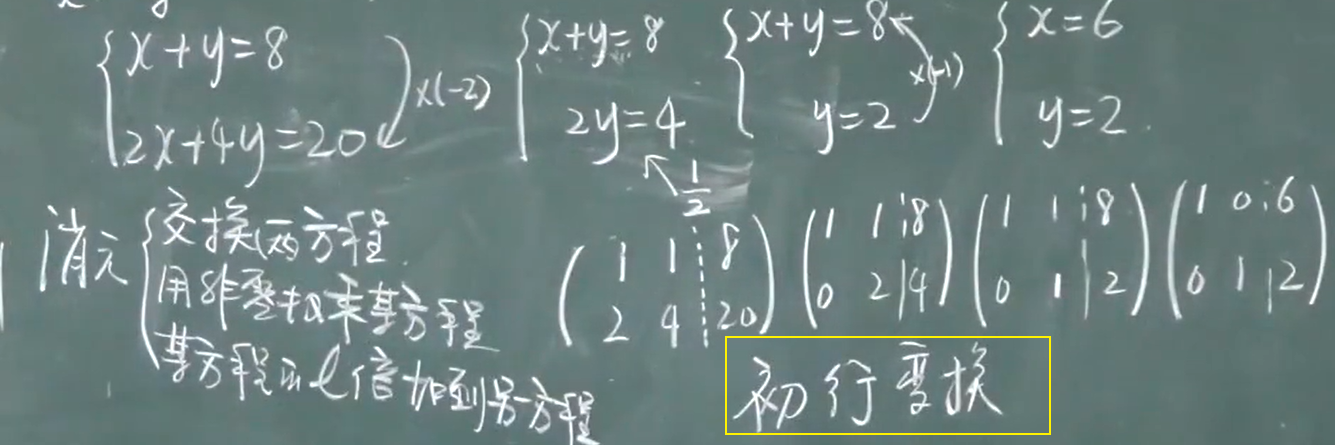 {x+y=8
2x+4y=20
×(-2)
{x+y=8
2y=4
1/2
{x+y=8
y=2
×(-1)
{x=6
y=2.
消元
{交换两方程.
用非零数乘某方程
某方程的l倍加到另方程
(1 1 ¦ 8
2 4 ¦ 20)
(1 1 ¦ 8
0 2 | 4)
(1 1 ¦ 8
0 1 | 2)
(1 0 ¦ 6
0 1 | 2)
初行变换